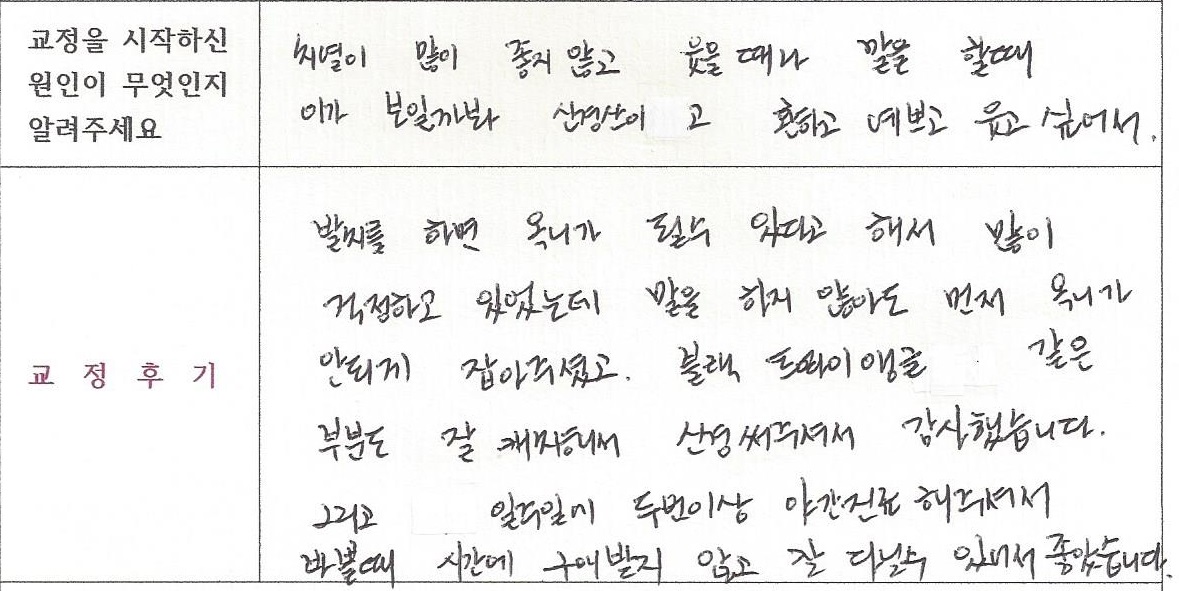 교정을 시작하신
원인이 무엇인지
알려주세요
치열이 많이 좋지 않고 웃을때나 말을 할때
이가 보일까봐 신경쓰이고 환하고 예쁘고 웃고 싶어서.
교정후기
발치를 하면 옥니가 될수 있다고 해서 많이
걱정하고 있었는데 말을 하지 않아도 먼저 옥니가
안되게 잡아주셨고. 블랙 트라이앵글 같은
부분도 잘 캐치해서 신경써주셔서 감사했습니다.
그리고 일주일에 두번이상 야간진료 해주셔서
바쁠때 시간에 구애받지 않고 잘 다닐수 있어서 좋았습니다.